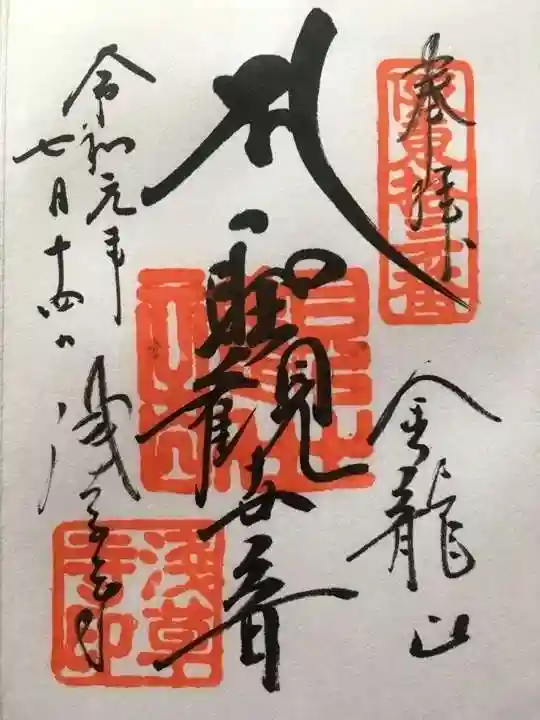 奉拝
金龍山
聖観世音
令和元年
七月十四日
浅草寺
坂東拾三番
浅草寺印